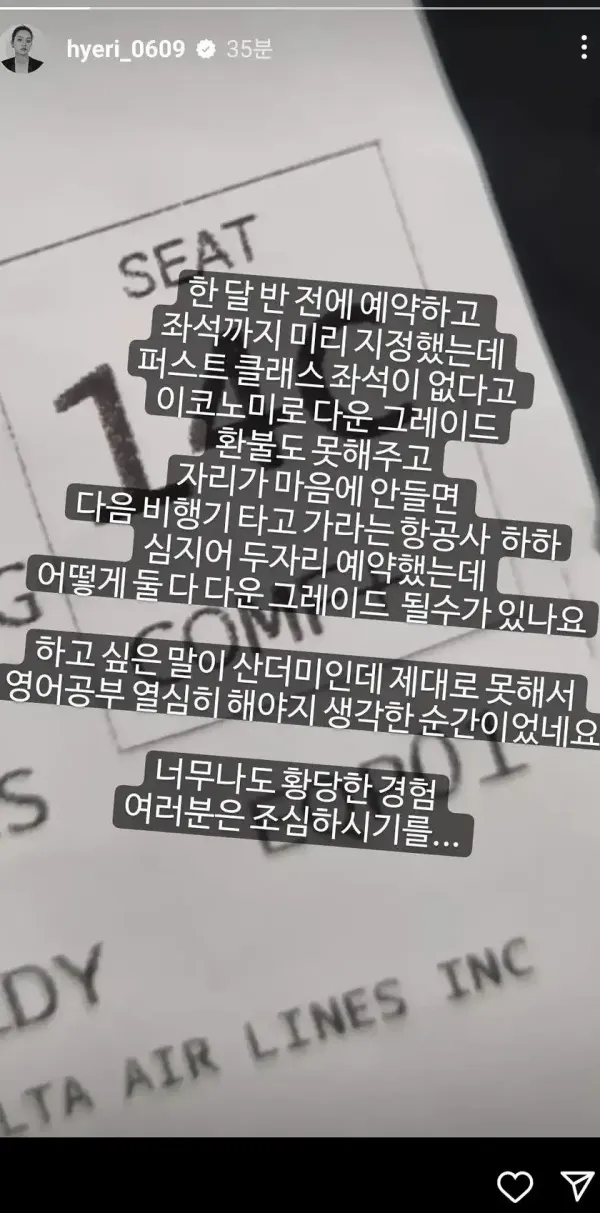 hyeri_0609 35분
SEAT
14C
한 달 반 전에 예약하고
좌석까지 미리 지정했는데
퍼스트 클래스 좌석이 없다고
이코노미로 다운 그레이드
환불도 못해주고
자리가 마음에 안들면
다음 비행기 타고 가라는 항공사 하하
심지어 두자리 예약했는데
어떻게 둘 다 다운 그레이드 될수가 있나요
하고 싶은 말이 산더미인데 제대로 못해서
영어공부 열심히 해야지 생각한 순간이었네요
너무나도 황당한 경험
여러분은 조심하시기를...
DY
LTA AIR LINES INC